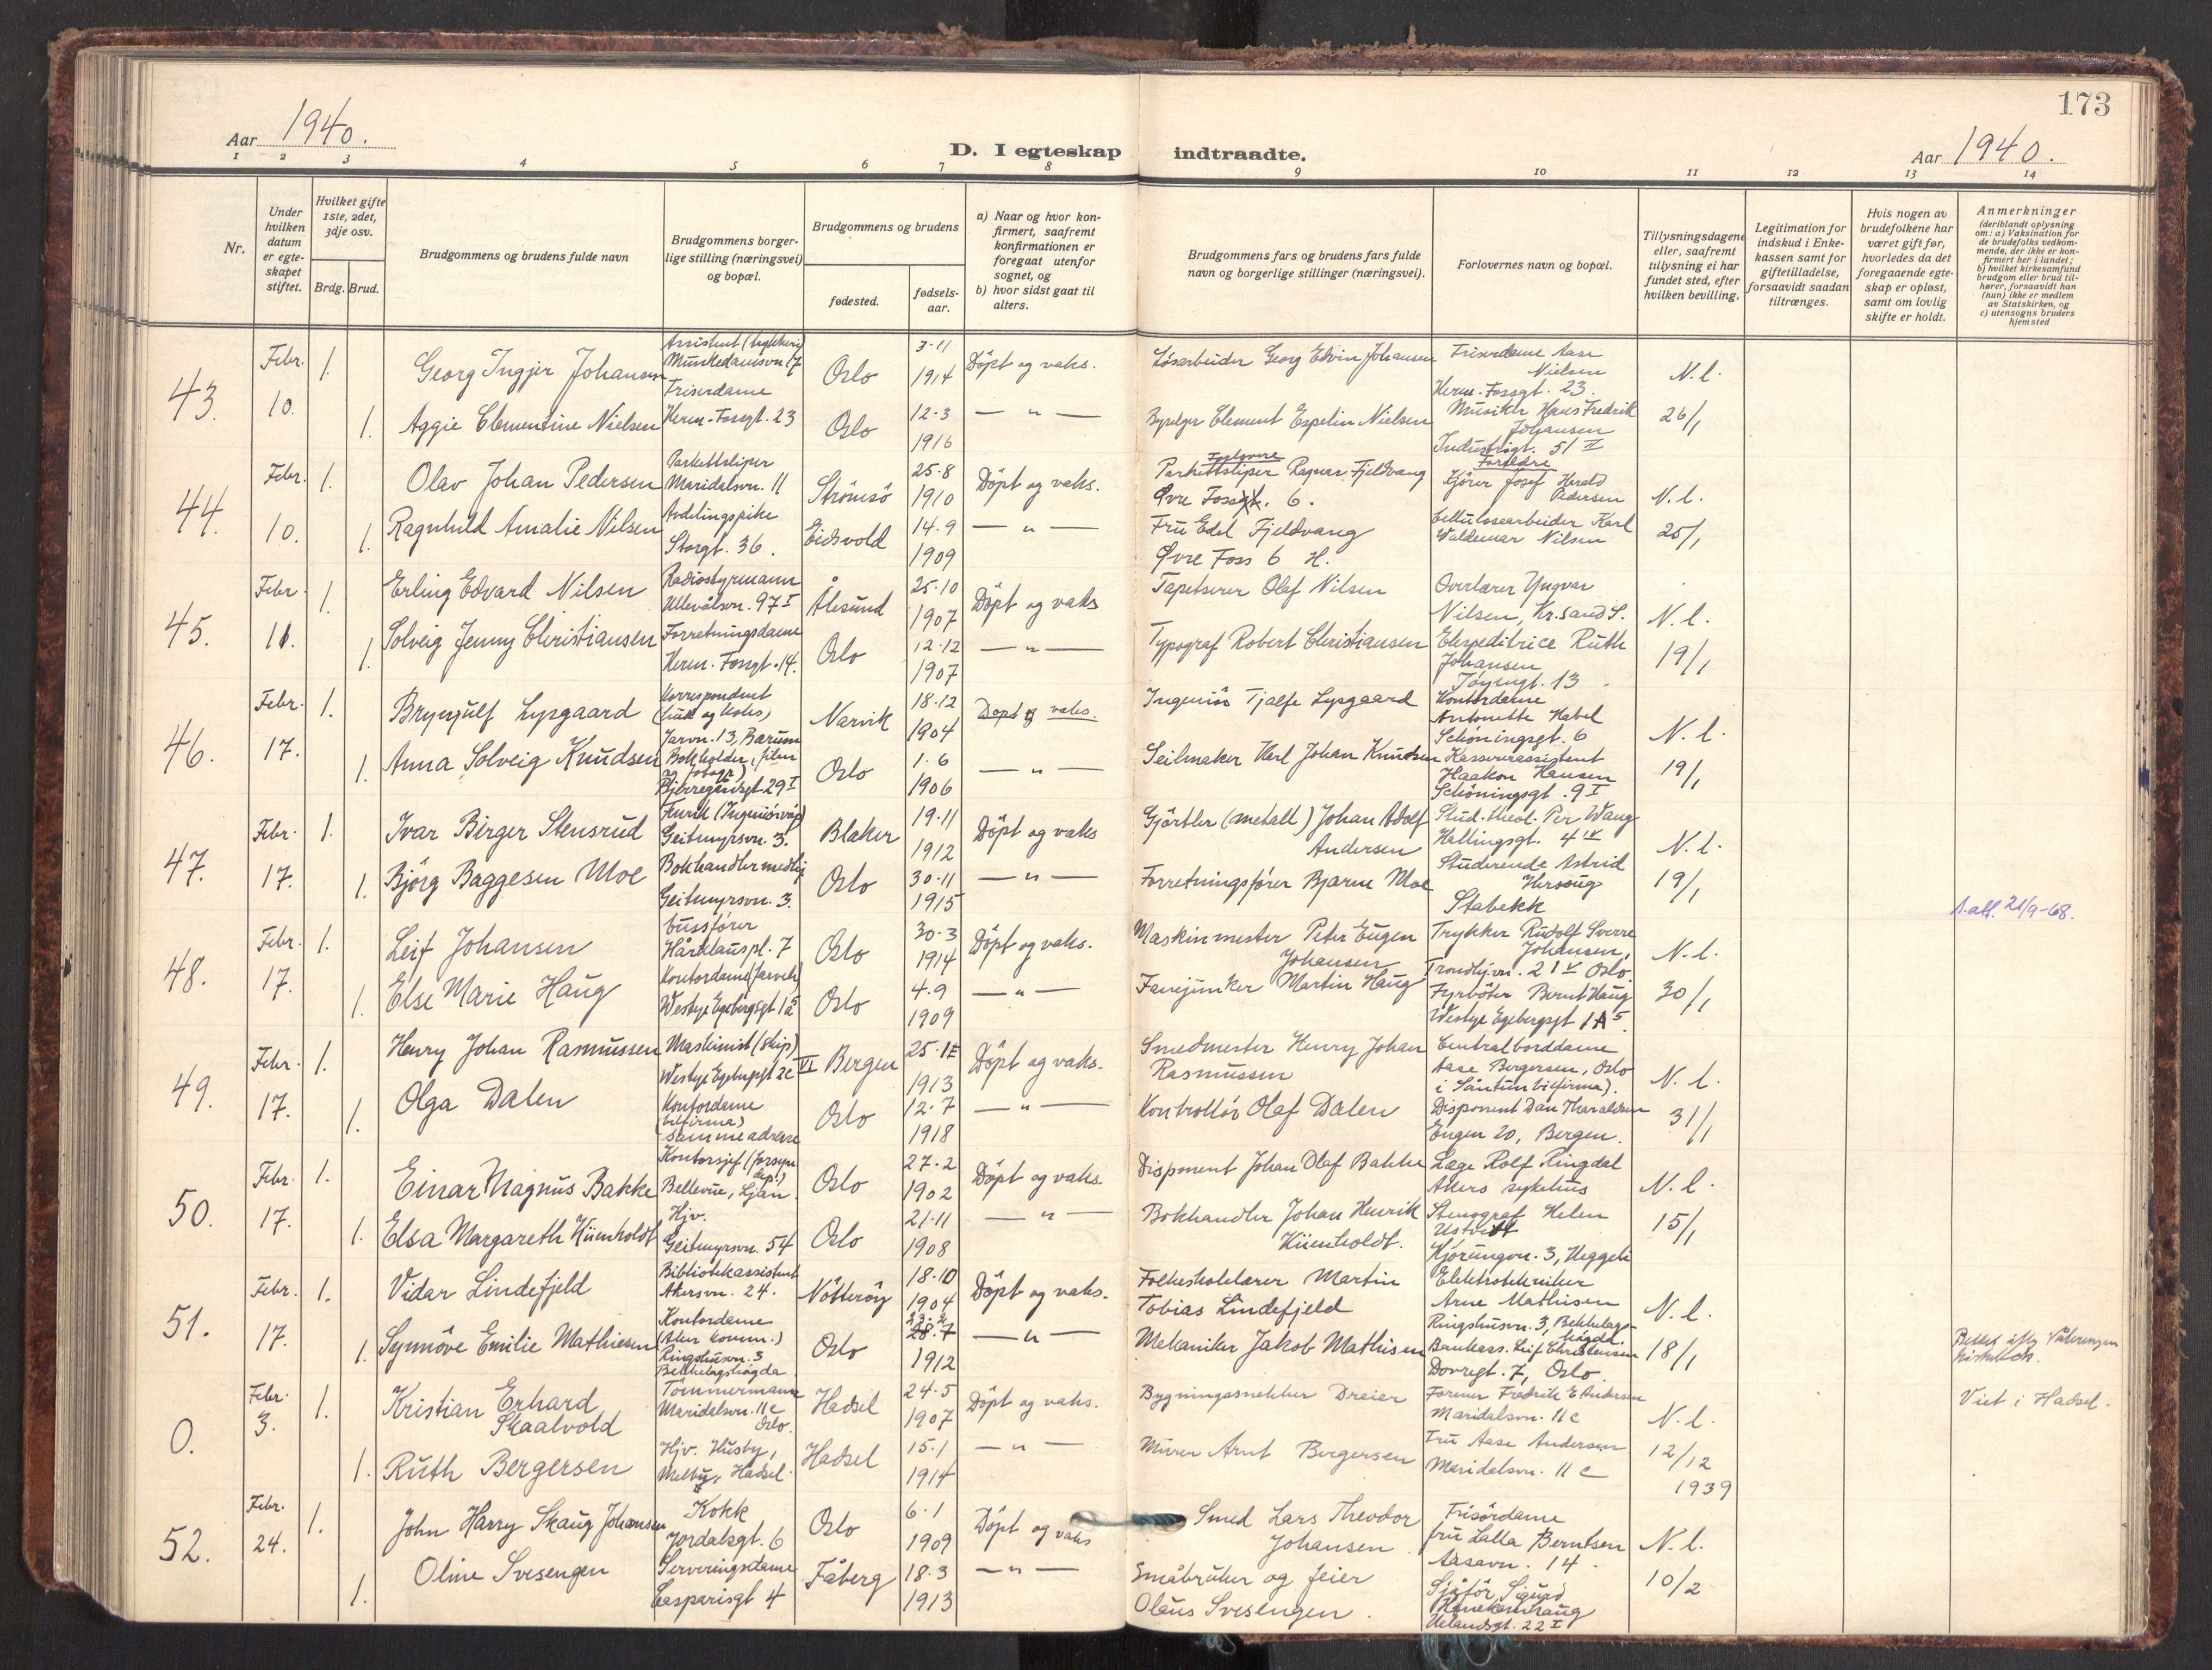 173
Aar 1940.
D. I egteskap indtraadte.
Aar 1940.
1 2 3 4 5 6 7 8 9 10 11 12 13 14
Nr.
Under hvilken datum er egteskapet stiftet.
Hvilket gifte 1ste, 2det, 3dje osv.
Brdg. Brud.
Brudgommens og brudens fulde navn
Brudgommens borgerlige stilling (næringsvei) og bopæl.
Brudgommens og brudens
fødested.
fødselsaar.
a) Naar og hvor konfirmert, saafremt konfirmationen er foregaat utenfor sognet, og
b) hvor sidst gaat til alters.
Brudgommens fars og brudens fars fulde navn og borgerlige stillinger (næringsvei).
Forlovernes navn og bopæl.
Tillysningsdagene eller, saafremt tillysning ei har fundet sted, efter hvilken bevilling.
Legitimation for indskud i Enkekassen samt for giftetilladelse, forsaavidt saadan tiltrænges.
Hvis nogen av brudefolkene har været gift før, hvorledes da det foregaaende egteskap er opløst, samt om lovlig skifte er holdt.
Anmerkninger
(deriblandt oplysning om: a) Vaksination for de brudefolks vedkommende, der ikke er konfirmert her i landet; b) hvilket kirkesamfund brudgom eller brud tilhører, forsaavidt han (hun) ikke er medlem av Statskirken, og c) utensogns bruders hjemsted
43. Febr. 10. 1. Georg Ingjer Johansen
Assistent
Munkedamsvn 17
Oslo 3-11 1914 Döpt og vaks.
Løsarbeider Georg Edvin Johansen
Friserdame Aase Nielsen
Herm. Fossgt. 23.
N.l.
1. Aggie Clementine Nielsen
Friserdame
Herm. Fossgt. 23
Oslo 12-3 1916 — " —
Byselger Element Espelin Nielsen
Musiker Hans Fredrik Johansen
Industrigt. 51 II
26/1
44. Febr. 10. 1. Olav Johan Pedersen
Parkettsliper
Maridalsvn. 11
Strömsö 25-8 1910 Döpt og vaks.
Forlovere
Parkettsliper Ragnar Fjeldvang
Øvre Fossgt. 6.
Foreldre
Kjører Josef Harald Pedersen
N.l.
1. Ragnhild Amalie Nilsen
Avdelingspike
Storgt. 36.
Eidsvold 14-9 1909 — " —
Fru Edel Fjeldvang
Øvre Foss 6 H.
Cellulosearbeider Karl Waldemar Nilsen
25/1
45. Febr. 11. 1. Erling Edvard Nilsen
Radiostyrmann
Ullevålsvn. 97 I
Ålesund 25-10 1907 Döpt og vaks
Tapetserer Olaf Nilsen
Overlærer Yngvar Nilsen, Kr.sand S.
N.l.
1. Solveig Jenny Christiansen
Forretningsdame
Herm. Fossgt. 14.
Oslo 12-12 1907 — " —
Typograf Robert Christiansen
Ekspeditrice Ruth Johansen
Töyengt. 13
19/1
46. Febr. 17. 1. Brynjulf Lysgaard
Korrespondent
(kull og koks)
Jarvn. 13, Bærum
Narvik 18-12 1904 Döpt og vaks.
Ingeniör Tjalfe Lysgaard
Kontordame Antonette Habel
Schöningsgt. 6
N.l.
1. Anna Solveig Knudsen
Bokholder (film og fotogr)
Bjerregårdsgt 29 I
Oslo 1-6 1906 — " —
Seilmaker Karl Johan Knudsen
Kasserassistent Haakon Hansen
Schöningsgt. 9 I
19/1
47. Febr. 17. 1. Ivar Birger Stensrud
Geitmyrsvn. 3.
Blaker 19-11 1912 Döpt og vaks
Gjörtler (metall) Johan Adolf Andersen
Stud. theol. Per Wang
Hallingsgt. 4 IV
N.l.
1. Björg Baggesen Moe
Bokhandlermedhj
Geitmyrsvn. 3.
Oslo 30-11 1915 — " —
Forretningsfører Bjarne Moe
Studerende Astrid Hersoug
Stabekk
19/1
48. Febr. 17. 1. Leif Johansen
Bussfører
Håreklauspl. 7
Oslo 30-3 1914 Döpt og vaks.
Maskinmester Peter Eugen Johansen
Trykker Rudolf Sverre Johansen,
Trondhj.vn. 21 V Oslo
N.l.
21/9-68.
1. Else Marie Haug
Westye Egebergsgt 1a
Oslo 4-9 1909 — " —
Fanejunker Martin Haug
Fyrböter Bernt Haug
Westye Egebergsgt 1A 5.
30/1
49. Febr. 17. 1. Henry Johan Rasmussen
Maskinist (Skip)
Westye Egebergsgt 2c VI
Bergen 25-12 1913 Döpt og vaks.
Smedmester Henry Johan Rasmussen
Centralborddame Aase Bergersen, Oslo
N.l.
1. Olga Dalen
Kontordame (bilfirma)
Samme adresse
Oslo 12-7 1918 — " —
Kontrollör Olaf Dalen
Disponent Dan Tharaldsen
Engen 20, Bergen.
31/1
50. Febr. 17. 1. Einar Magnus Bakke
Kontorsjef (forsyn. dep.)
Bellevue, Ljan
Oslo 27-2 1902 Döpt og vaks.
Disponent Johan Olaf Bakke
Læge Rolf Ringdal
Akers sykehus
N.l.
1. Elsa Margareth Küenholdt
Hjv.
Geitmyrsvn. 54
Oslo 21-11 1908 — " —
Bokhandler Johan Henrik Küenholdt.
Stenograf Helen Ustvedt
Kjörungvn. 3, Heggeli
15/1
51. Febr. 17. 1. Vidar Lindefjeld
Bibliotekassistent
Akersvn. 24.
Nötteröy 18-10 1904 Döpt og vaks.
Folkeskolelærer Martin Tobias Lindefjeld
Elektrotekniker Arne Mathisen
Ringshusvn. 3, Bekkelagshögda.
N.l.
1. Synnöve Emilie Mathiesen
Kontordame
(Aker komm.)
Ringshusvn. 3
Bekkelagshögda
Oslo 28-7 1912 — " —
Mekaniker Jakob Mathisen
Bankass. Leif Christensen
Dovregt. 7, Oslo.
18/1
0. Febr. 3. 1. Kristian Erhard Skaalvold
Tömmermann
Maridalsvn. 11c Oslo.
Hadsel 24-5 1907 Döpt og vaks.
Bygningssnekker Dreier
Farmer Fredrik E Andersen
Maridalsvn. 11c
N.l.
Viet i Hadsel.
1. Ruth Bergersen
Hjv. Husby,
Melby, Hadsel.
Hadsel 15-1 1914 — " —
Murer Arnt Bergersen
Fru Aase Andersen
Maridalsvn. 11c
12/12 1939
52. Febr. 24. 1. John Harry Skaug Johansen
Kokk
Jordalsgt. 6
Oslo 6-1 1909 Döpt og vaks
Smed Lars Theodor Johansen.
Frisördame fru Lalla Berntsen
Aasavn. 14
N.l.
1. Oline Svesengen
Serveringsdame
Casparisgt 4
Fåberg 18-3 1913 — " —
Småbruker og feier Olaus Svesengen.
Sjåför Sigurd
Uelandsgt. 22 I
10/2